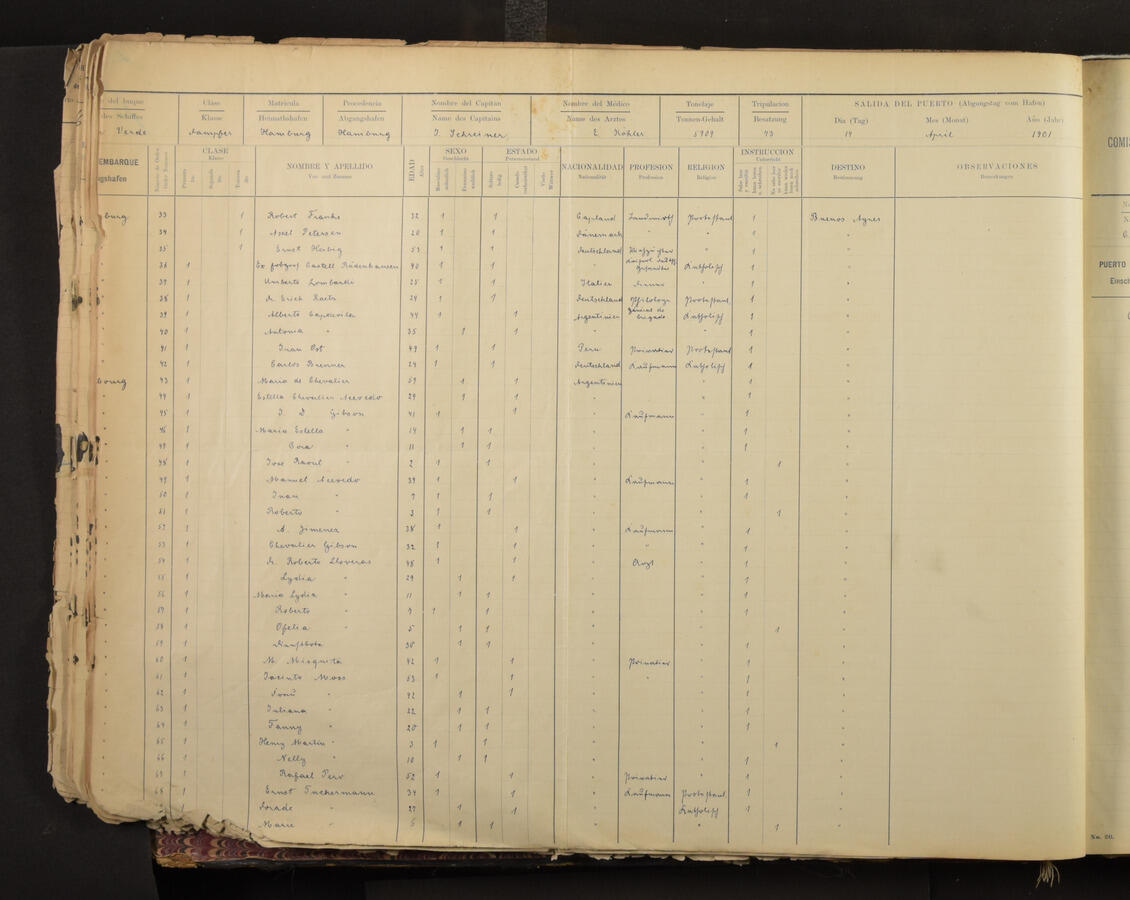 del buque Clase Matricula Procedencia Nombre del Capitan Nombre del Médico Tonelaje Tripulacion SALIDA DEL PUERTO (Abgangstag vom Hafen)
des Schiffes Klasse Heimathshafen Abgangshafen Name des Capitains Name des Arztes Tonnen-Gehalt Besatzung Dia (Tag) Mes (Monat) Año (Jahr)
Verde Dampfer Hamburg Hamburg J. Schreiner E. Köhler 5909 73 14 April 1901
EMBARQUE CLASE NOMBRE Y APELLIDO EDAD SEXO ESTADO NACIONALIDAD PROFESION RELIGION INSTRUCCION DESTINO OBSERVACIONES
gshafen Klasse Vor- und Zuname Alter Geschlecht Personenstand Nationalität Profession Religion Unterricht Bestimmung Bemerkungen
burg 33 1 Robert Franke 32 1 1 Capland Landwirth Protestant 1 Buenos Ayres
" 34 1 Axel Petersen 20 1 1 Dänemark " " 1 "
" 35 1 Ernst Helbig 53 1 1 Deutschland " 1 "
" 36 1 Castell Rüdenhausen 40 1 1 " Katholisch 1 "
" 37 1 Umberto Lombardi 25 1 1 Italien " 1 "
" 38 1 Dr. Erich 24 1 1 Deutschland Philologe Protestant 1 "
" 39 1 Alberto Capdevila 44 1 1 Argentinien General de brigade Katholisch 1 "
" 40 1 Antonia " 35 1 1 " " 1 "
" 41 1 Juan Ost 49 1 1 Peru Privatier Protestant 1 "
" 42 1 Carlos Brenner 24 1 1 Deutschland Kaufmann Katholisch 1 "
bourg 43 1 Maria de Chevalier 59 1 1 Argentinien " 1 "
" 44 1 Estella Chevalier Acevedo 29 1 1 " " 1 "
" 45 1 J. D. Gibson 41 1 1 " Kaufmann " 1 "
" 46 1 Maria Estella " 14 1 1 " " 1 "
" 47 1 " 11 1 1 " " 1 "
" 48 1 Jose Raoul " 2 1 1 " " 1 "
" 49 1 Manuel Acevedo 39 1 1 " Kaufmann " 1 "
" 50 1 Juan " 7 1 1 " " 1 "
" 51 1 Roberto " 3 1 1 " " 1 "
" 52 1 A. Jimenez 38 1 1 " Kaufmann " 1 "
" 53 1 Chevalier Gibson 32 1 1 " " " 1 "
" 54 1 Dr. Roberto Lloveras 48 1 1 " Arzt " 1 "
" 55 1 Lydia " 29 1 1 " " 1 "
" 56 1 Maria Lydia " 11 1 1 " " 1 "
" 57 1 Roberto " 7 1 1 " " 1 "
" 58 1 Ofelia " 5 1 1 " " 1 "
" 59 1 30 1 1 " " 1 "
" 60 1 M. Mesquita 42 1 1 " Privatier " 1 "
" 61 1 Jacinto Moss 53 1 1 " " " 1 "
" 62 1 Frau " 42 1 1 " " 1 "
" 63 1 Juliana " 22 1 1 " " 1 "
" 64 1 Fanny " 20 1 1 " " 1 "
" 65 1 Henry Martin " 3 1 1 " " 1 "
" 66 1 Nelly " 10 1 1 " " 1 "
" 67 1 Rafael Pero 52 1 1 " Privatier " 1 "
" 68 1 Ernst Tuckermann 34 1 1 " Kaufmann Protestant 1 "
" " 27 1 1 " Katholisch 1 "
Marie " 5 1 1 " " 1 "
COMIS
PUERTO
Einsch
No. 20.